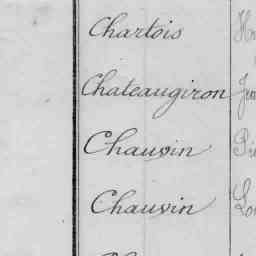 Chartois
Chateaugiron
Chauvin
Chauvin